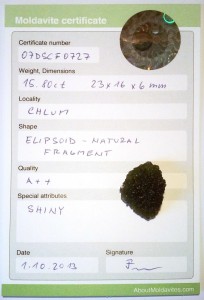 Moldavite certificate
Certificate number
07DSCF0727
Weight, Dimensions
15.80ct 23x16x6mm
Locality
CHLUM
Shape
ELIPSOID - NATURAL
FRAGMENT
Quality
A++
Special attributes
SHINY
Date
Signature
1.10.2013
AboutMoldavites.com